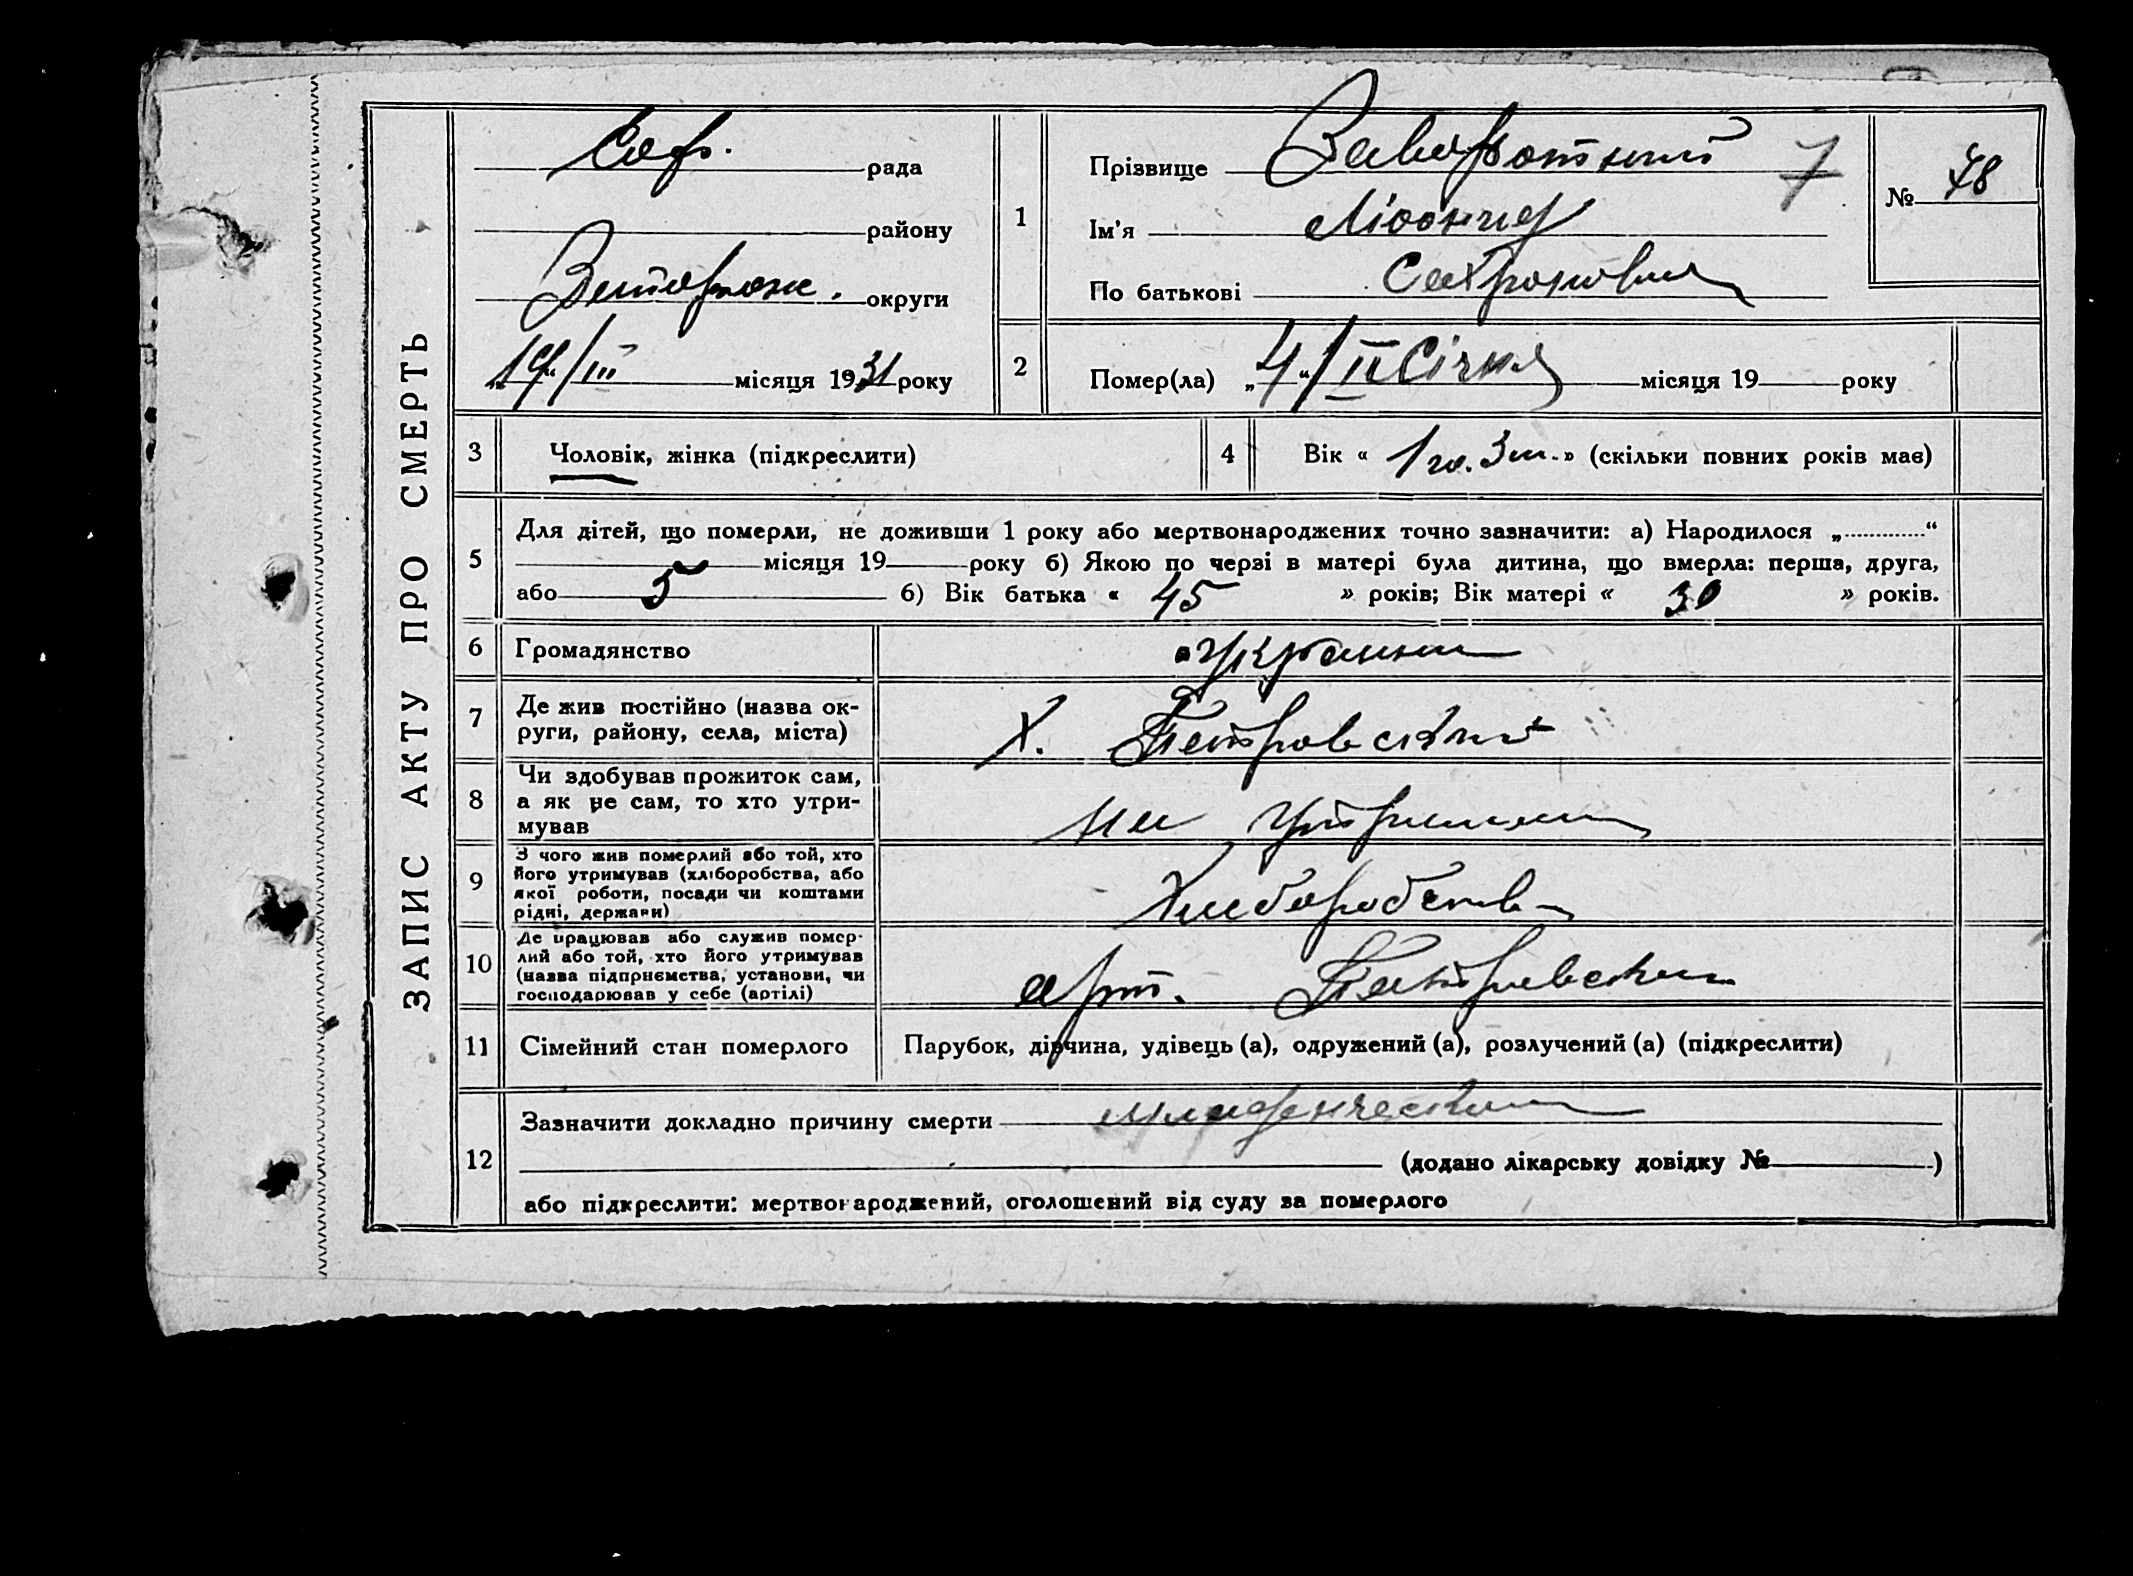 ЗАПИС АКТУ ПРО СМЕРТЬ
Соф. рада
району
округи
19/III місяця 1931 року
1
Прізвище Заворотний 7
Ім'я Ліонид
По батькові
№ 78
2
Помер(ла) „4“/II Січня місяця 19 року
3
Чоловік, жінка (підкреслити)
4
Вік « 1 го. 3 м. » (скільки повних років має)
5
Для дітей, що померли, не доживши 1 року або мертвонароджених точно зазначити: а) Народилося „............“
місяця 19 року б) Якою по черзі в матері була дитина, що вмерла: перша, друга,
або 5 6) Вік батька « 45 » років; Вік матері « 30 » років.
6
Громадянство
7
Де жив постійно (назва ок-
руги, району, села, міста)
Х. Петровский
8
Чи здобував прожиток сам,
а як не сам, то хто утри-
мував
9
З чого жив померлий або той, хто
його утримував (хліборобства, або
якої роботи, посади чи коштами
рідні, держави)
Хлеборобств
10
Де працював або служив помер-
лий або той, хто його утримував
(назва підприємства, установи, чи
господарював у себе (артілі)
арт. Петровский
11
Сімейний стан померлого
Парубок, дівчина, удівець (а), одружений (а), розлучений (а) (підкреслити)
12
Зазначити докладно причину смерти младенческая
(додано лікарську довідку № )
або підкреслити: мертвонароджений, оголошений від суду за померлого